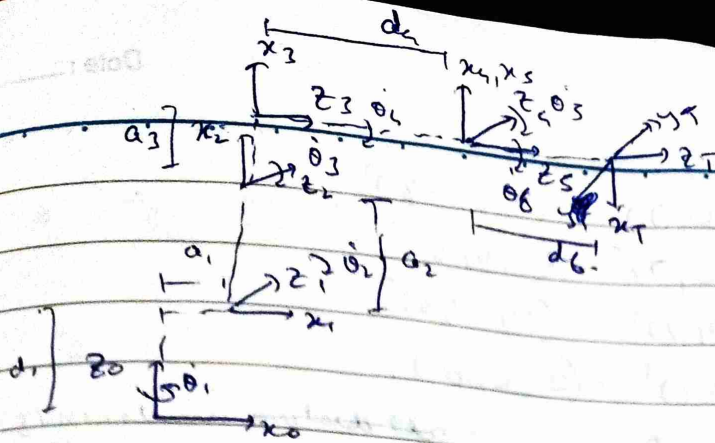 Date:
d4
x3
x4, x5
z3 θ̇4
z4 θ̇5
yT
zT
a3
x2
θ̇3
z2
z5
θ6
xT
d6
a1
z1 θ̇2
a2
x1
d1
z0
θ̇1
x0